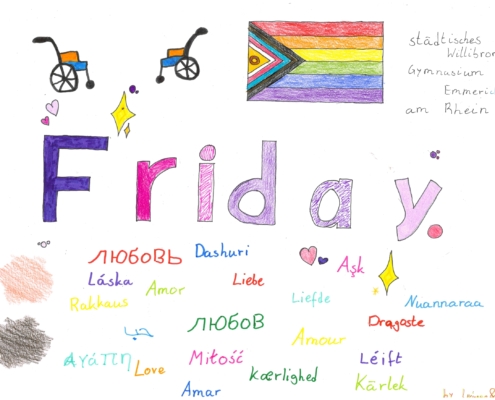 städtisches
Gymnasium
am Rhein
Friday.
любовь Dashuri Aşk
Láska Amor Liebe Liefde Nuannaraa
Rakkaus
حب любов Amour Dragoste
Αγάπη Love Miłość Kærlighed Léift
Amar Kärlek